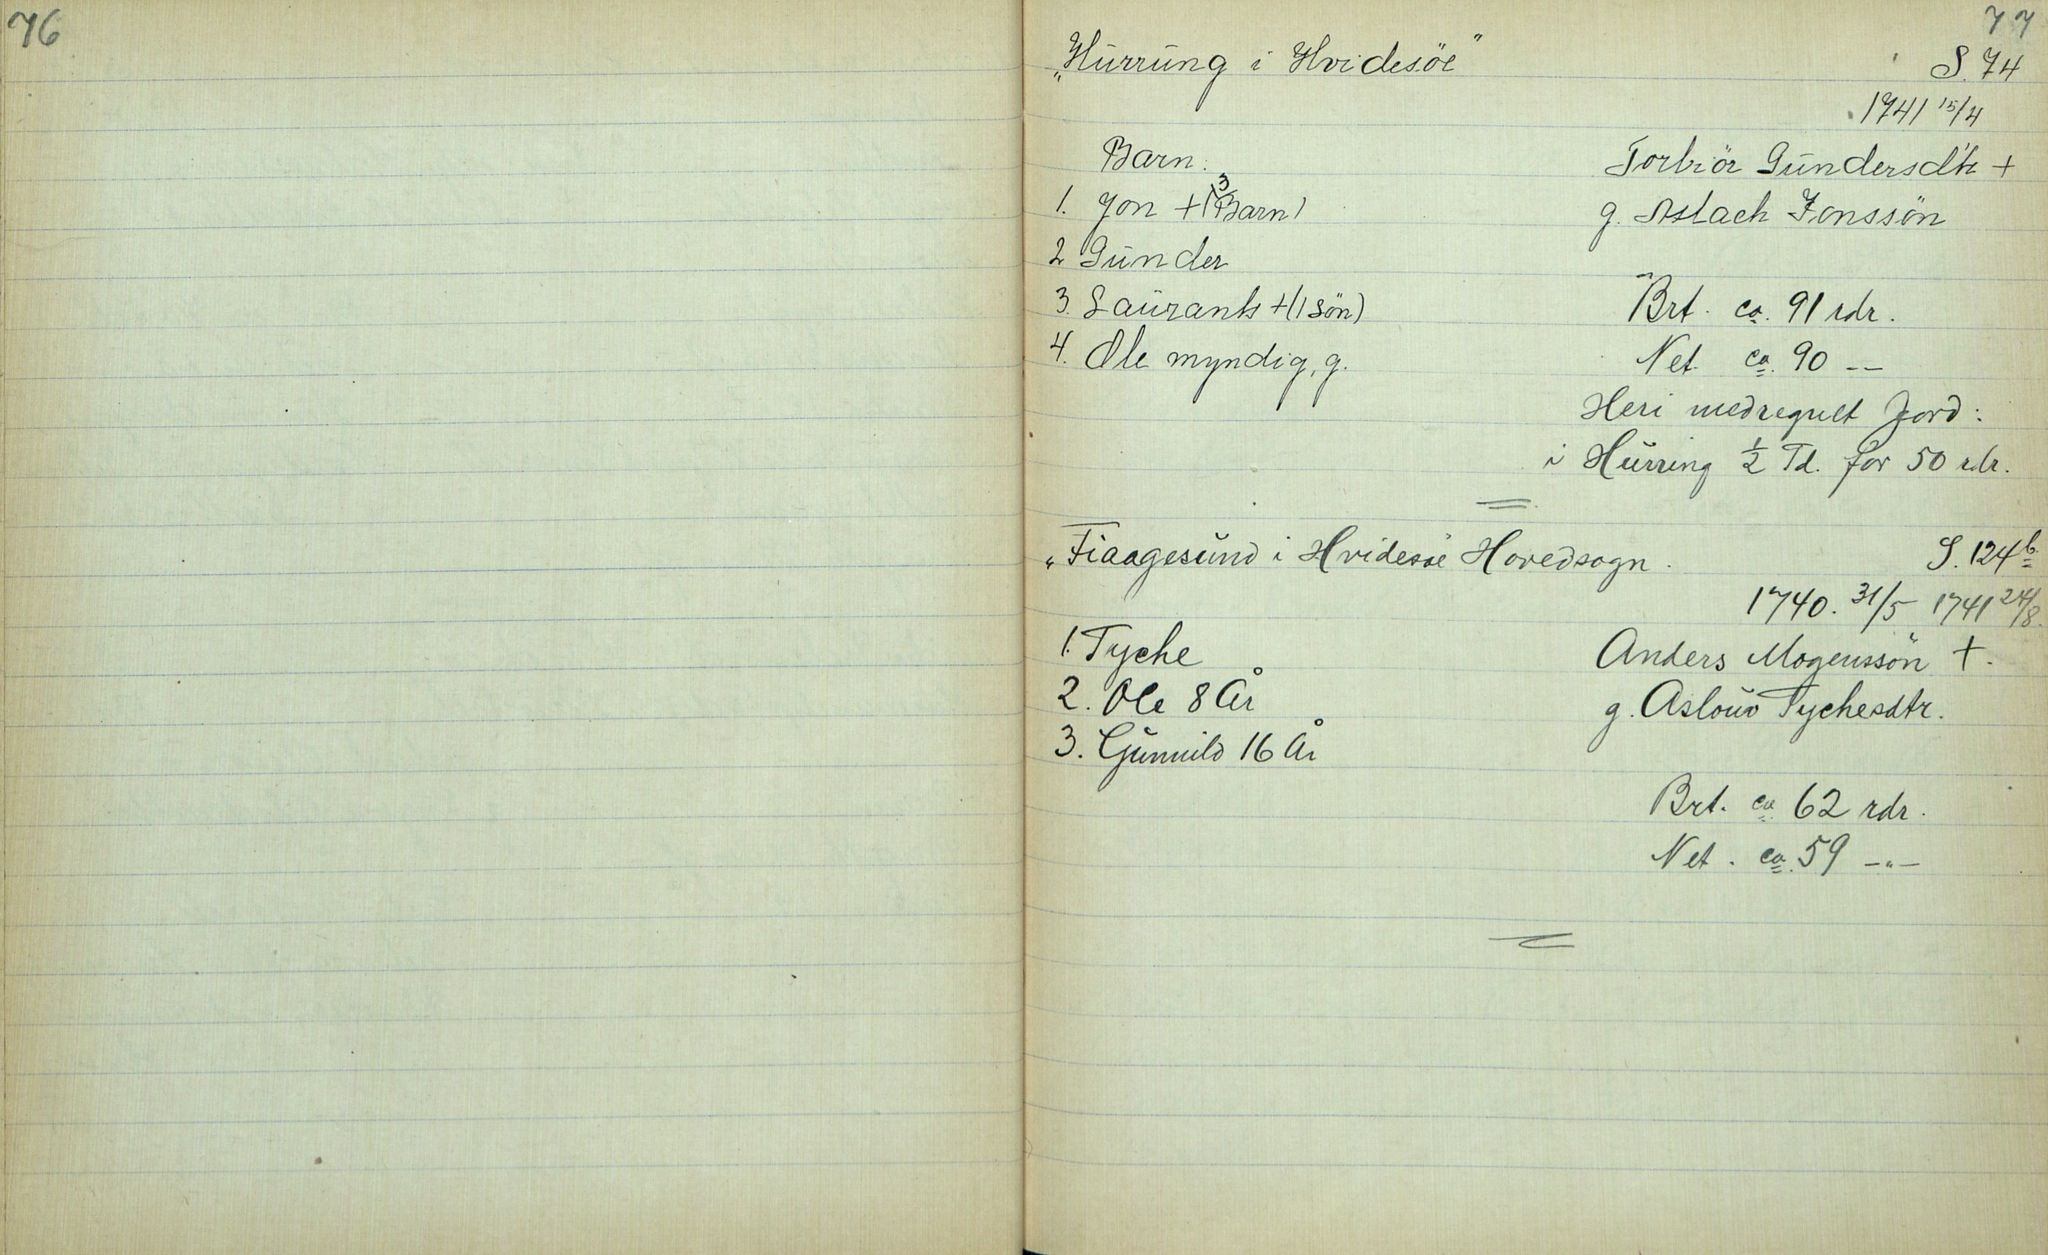 76
77
„Hurrung i Hvidesöe" S. 74
1741 15/4
Barn: Torbiör Gundersdtr +
1. Jon + (3 Barn) g. Aslach Jonssön
2 Gunder
3. Laurants + (1 Sön) Brt. ca. 91 rdr.
4. Ole myndig, g. Net. ca. 90 --
Heri medregnet Jord:
i Hurring ½ Td. for 50 rdr.
„Fiaagesund i Hvidesöe Hovedsogn. S. 124b
1740. 31/5 1741 24/8.
1. Tyche Anders Mogenssön +.
2. Ole 8 År g. Aslouv Tychesdtr.
3. Gunnild 16 År
Brt. ca 62 rdr.
Net. ca. 59 -"-